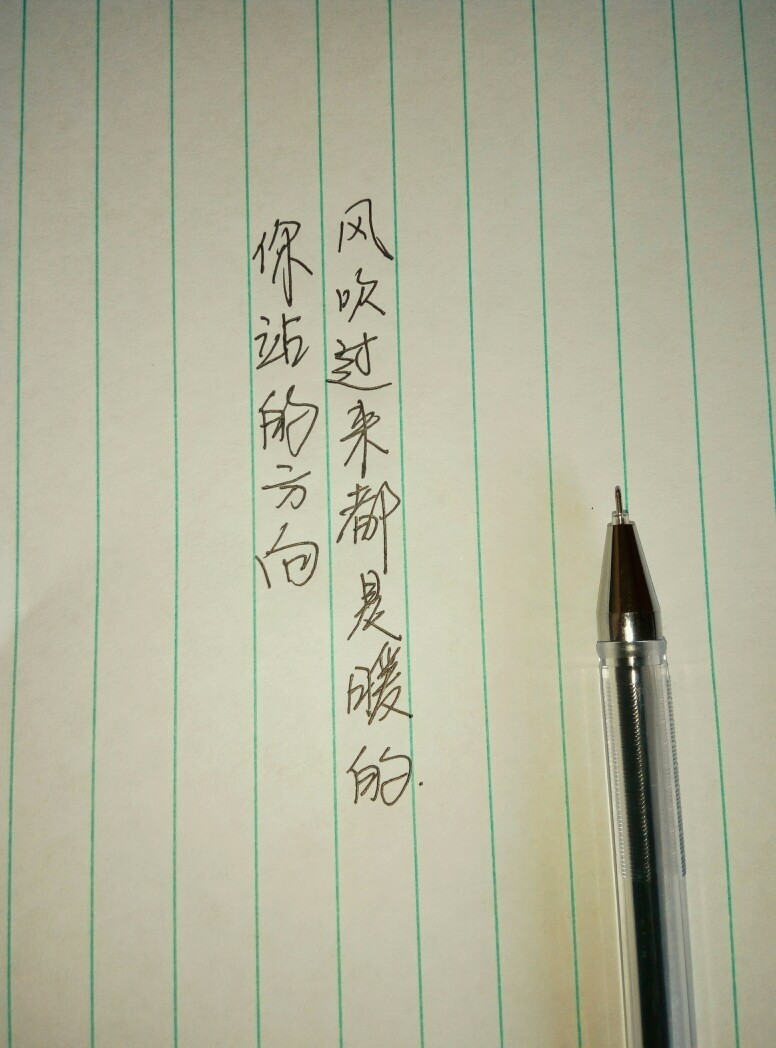 你站的方向
风吹过来都是暖的.